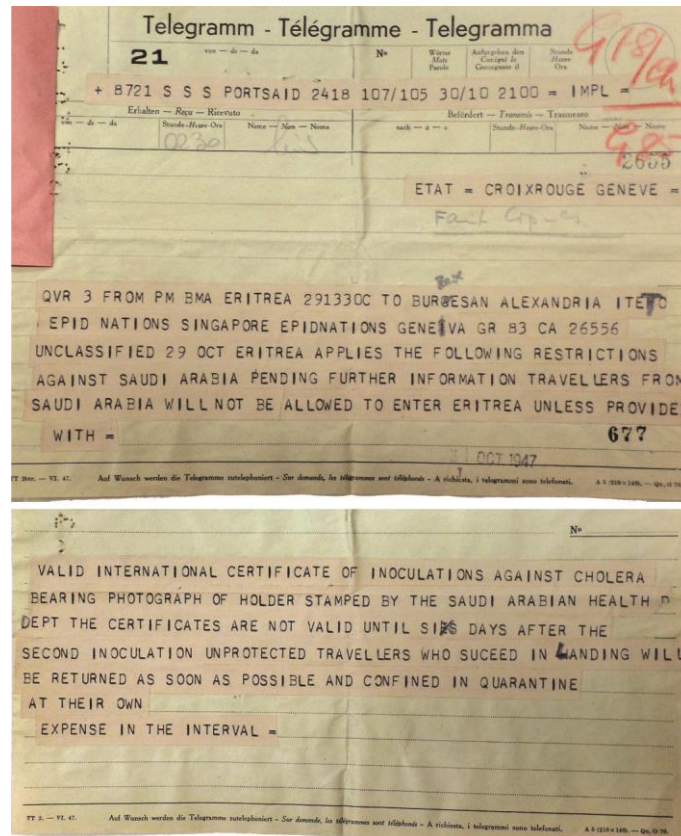 Telegramm - Télégramme - Telegramma
21
von — de — da
N°
Wörter
Mots
Parole
Aufgegeben den
Consigné le
Consegnato il
Stunde
Heure
Ora
+ 8721 S S S PORTSAID 2418 107/105 30/10 2100 = IMPL =
Erhalten — Reçu — Ricevuto
Befördert — Transmis — Trasmesso
von — de — da
Stunde-Heure-Ora
Name — Nom — Nome
nach — à — a
Stunde-Heure-Ora
Name — Nom — Nome
0230
2655
ETAT = CROIXROUGE GENEVE =
QVR 3 FROM PM BMA ERITREA 291330C TO BURGESAN ALEXANDRIA ITETO
EPID NATIONS SINGAPORE EPIDNATIONS GENEIVA GR 83 CA 26556
UNCLASSIFIED 29 OCT ERITREA APPLIES THE FOLLOWING RESTRICTIONS
AGAINST SAUDI ARABIA PENDING FURTHER INFORMATION TRAVELLERS FROM
SAUDI ARABIA WILL NOT BE ALLOWED TO ENTER ERITREA UNLESS PROVIDE
WITH =
677
OCT 1947
VI. 47. Auf Wunsch werden die Telegramme zutelephoniert - Sur demande, les télégrammes sont téléphonés - A richiesta, i telegrammi sono telefonati.
N°
VALID INTERNATIONAL CERTIFICATE OF INOCULATIONS AGAINST CHOLERA
BEARING PHOTOGRAPH OF HOLDER STAMPED BY THE SAUDI ARABIAN HEALTH D
DEPT THE CERTIFICATES ARE NOT VALID UNTIL SIX DAYS AFTER THE
SECOND INOCULATION UNPROTECTED TRAVELLERS WHO SUCEED IN LANDING WILL
BE RETURNED AS SOON AS POSSIBLE AND CONFINED IN QUARANTINE
AT THEIR OWN
EXPENSE IN THE INTERVAL =
TT 2. — VI. 47. Auf Wunsch werden die Telegramme zutelephoniert - Sur demande, les télégrammes sont téléphonés - A richiesta, i telegrammi sono telefonati.